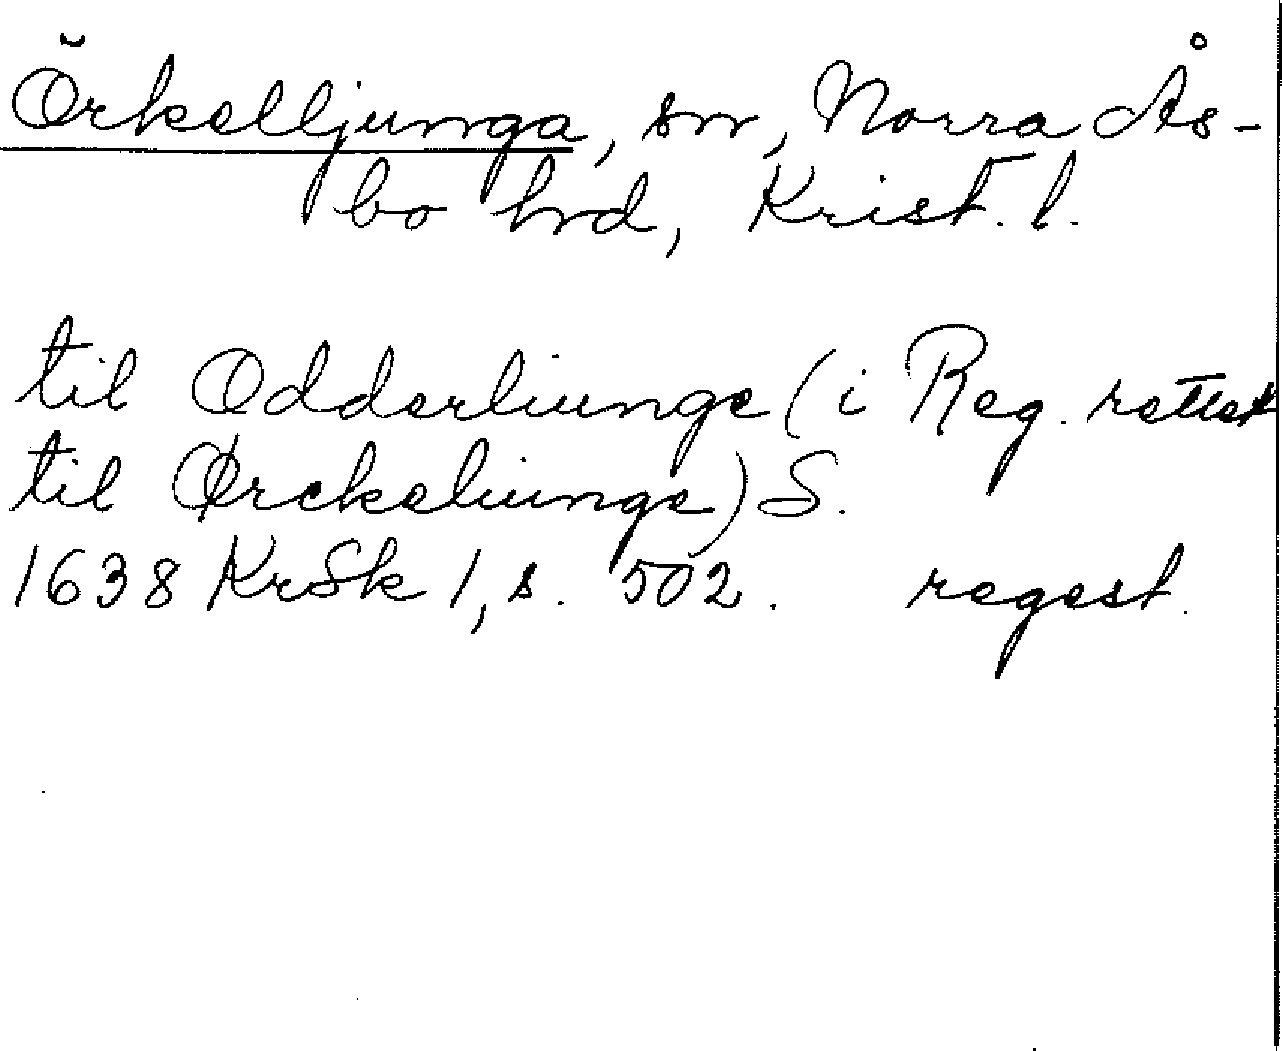 Örkelljunga, sn, Norra Ås-
bo hrd, Krist. l.
til Odderliunge (i Reg. rettet
til Ørckeliunge) S.
1638 KrSk 1, s. 502. regest.